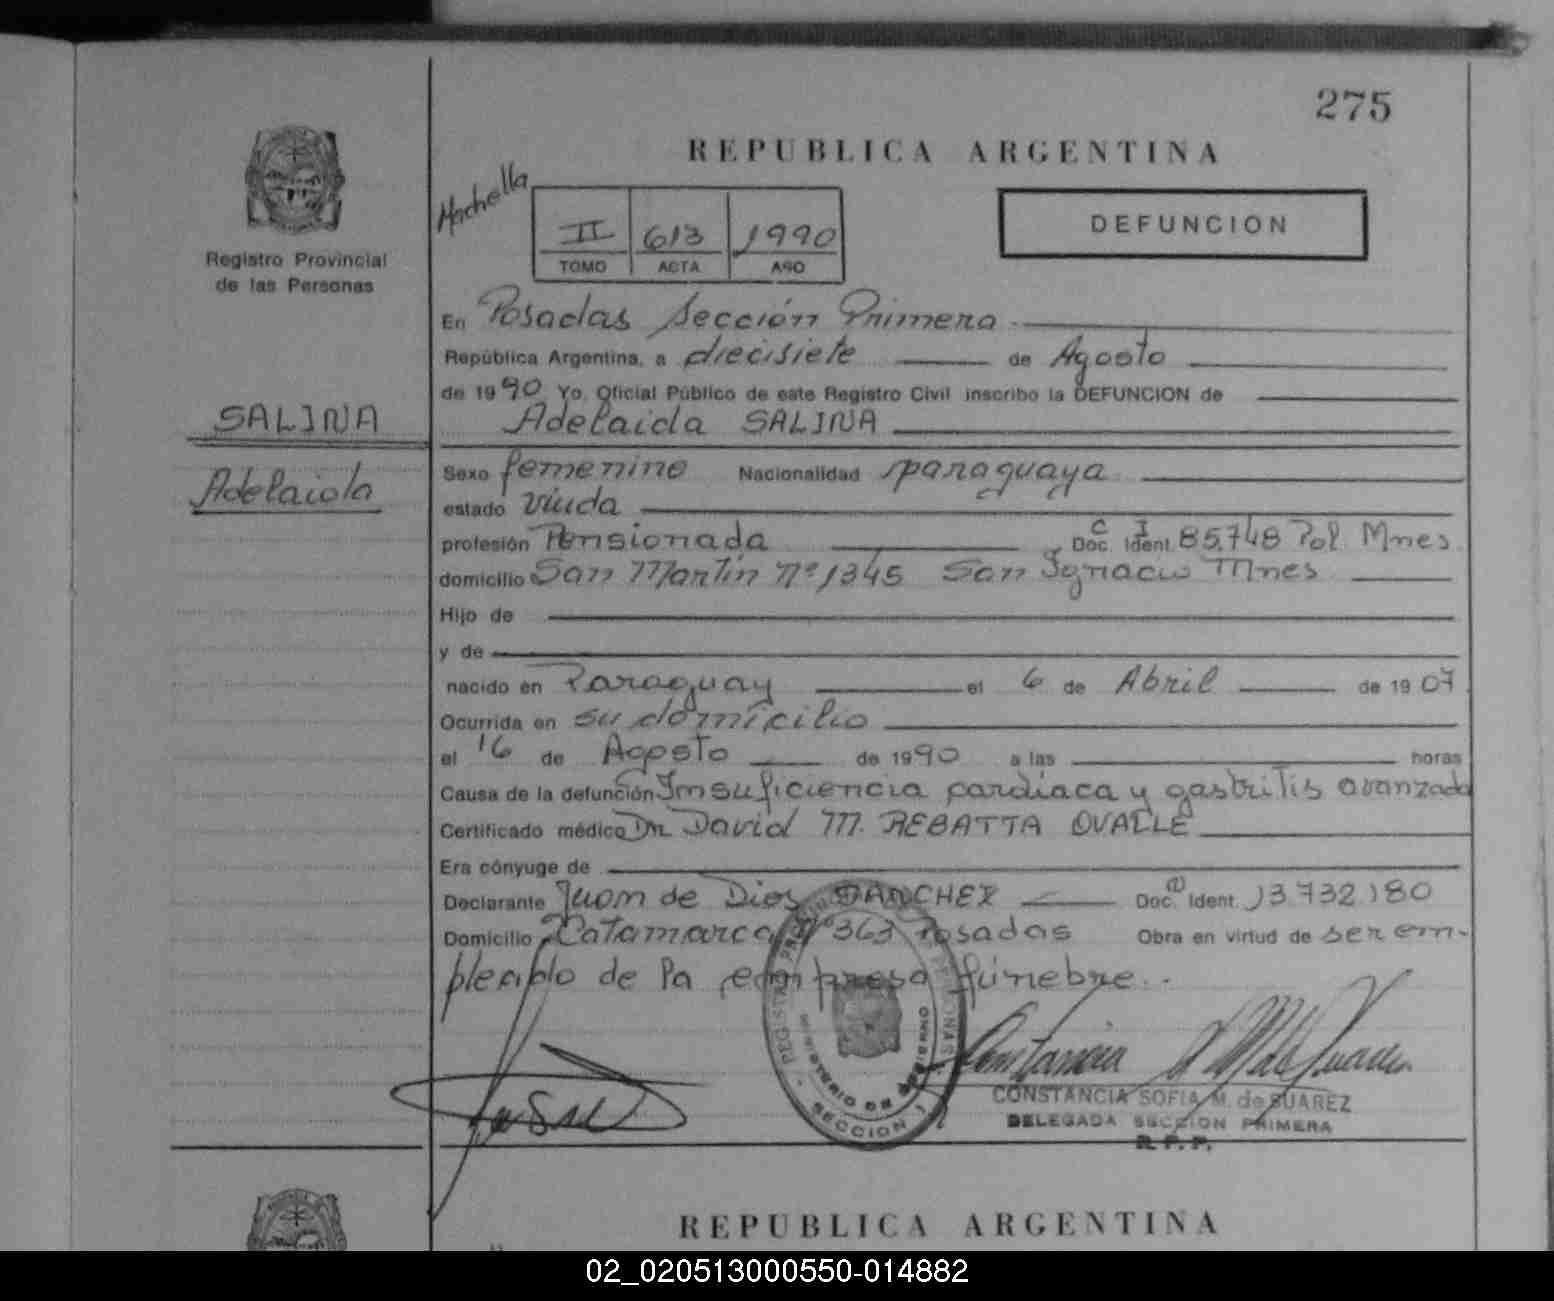 275
REPUBLICA ARGENTINA
Registro Provincial
de las Personas
II 613 1990
TOMO ACTA AÑO
DEFUNCION
En Posadas Sección Primera
República Argentina, a diecisiete de Agosto
de 1990 Yo, Oficial Público de este Registro Civil inscribo la DEFUNCION de
Adelaida SALINA
SALINA
Adelaida
Sexo femenino Nacionalidad paraguaya
estado viuda
profesión Pensionada Doc. Ident. C I 85.748 Pol. Mnes.
domicilio San Martín Nº 1345 San Ignacio Mnes
Hijo de
y de
nacido en Paraguay el 6 de Abril de 1907
Ocurrida en su domicilio
el 16 de Agosto de 1990 a las horas
Causa de la defunción Insuficiencia cardíaca y gastritis avanzada
Certificado médico Dr David M. REBATTA OVALLE
Era cónyuge de
Declarante Juan de Dios SANCHEZ Doc. Ident. 13.732.180
Domicilio Catamarca Nº 363 Posadas Obra en virtud de ser em-
pleado de la empresa fúnebre.
SECCION 1
CONSTANCIA SOFIA M. de SUAREZ
DELEGADA SECCION PRIMERA
R.P.P.
REPUBLICA ARGENTINA
02_020513000550-014882